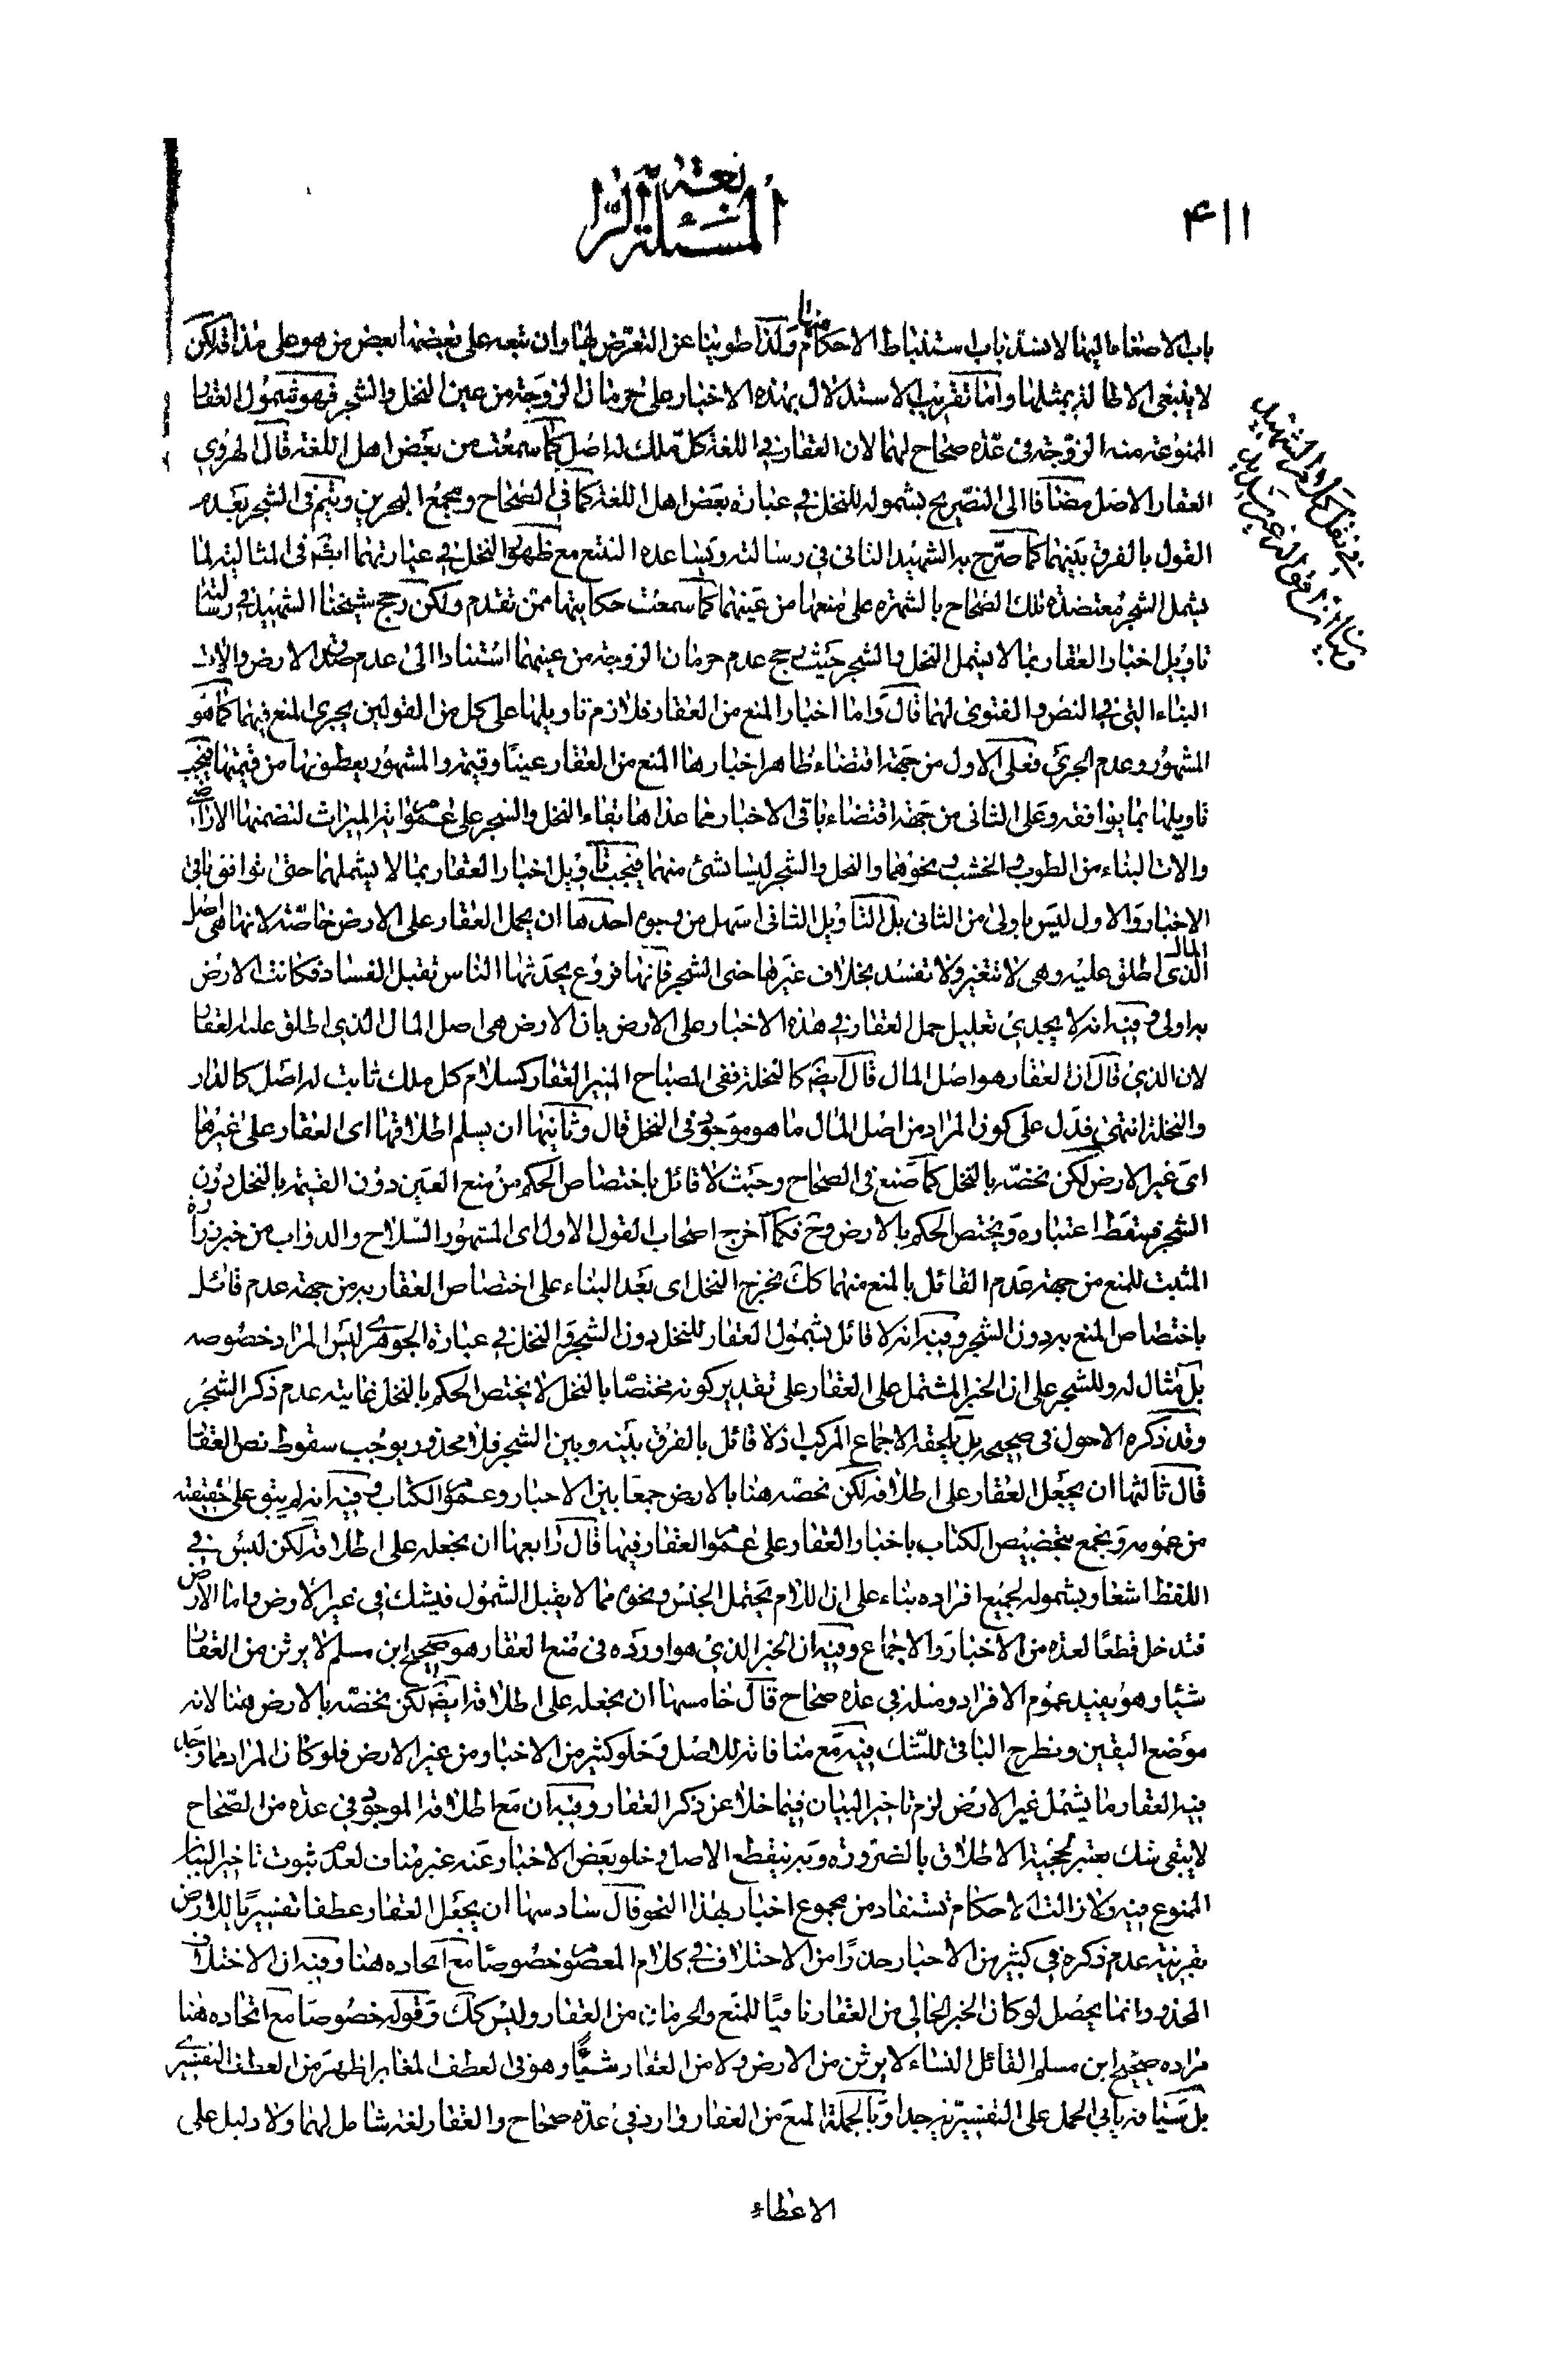 ۴۱۱
المسئلة الرابعة
باب الاصغاء اليها لانسد باب استنباط الاحكام منها ولذا طوينا عن التعرض لها وان تبعه على بعضها بعض من هو على مذاقه لكن
لا ينبغى الاطالة بمثلها واما تقريب الاستدلال بهذه الاخبار على حرمان الزوجة من عين النخل والشجر فهو شمول العقار
الممنوعة منه الزوجة فى عدة صحاح لهما لان العقار فى اللغة كل ملك له اصل كما سمعت من بعض اهل اللغة قال الهروى
العقار الاصل مضافا الى التصريح بشموله للنخل فى عبارة بعض اهل اللغة كما فى الصحاح ومجمع البحرين ويتم فى الشجر بعدم
القول بالفرق بينهما كما صرح به الشهيد الثانى فى رسالته ويساعده التتبع مع ظهور النخل فى عبارتهما ايضا فى المثالية لما
يشمل الشجر معتضدة تلك الصحاح بالشهرة على منعها من عينهما كما سمعت حكايتها ممن تقدم ولكن رجح شيخنا الشهيد فى رسالته
تاويل اخبار العقار بما لا يشمل النخل والشجر حيث رجح عدم حرمان الزوجة من عينهما استنادا الى عدم صدق الارض والات
البناء التى فى النص والفتوى لهما قال واما اخبار المنع من العقار فلازم تاويلها على كل من القولين يجرى المنع فيهما كما هو
المشهور وعدم الجرى فعلى الاول من جهة اقتضاء ظاهر اخبارها المنع من العقار عينا وقيمة والمشهور يعطونها من قيمتها فيجب
تاويلها بما يوافقه وعلى الثانى من جهة اقتضاء باقى الاخبار مما عداها بقاء النخل والشجر على عموم اية الميراث لتضمنها الاراضى
والات البناء من الطوب والخشب ونحوهما والنخل والشجر ليسا بشئ منهما فيجب تاويل اخبار العقار بما لا يشملهما حتى توافق باقى
الاخبار والاول ليس باولى من الثانى بل التاويل الثانى اسهل من وجوه احدها ان يحمل العقار على الارض خاصة لانها هى اصل
المال الذى اطلق عليه وهى لا تتغير ولا تفسد بخلاف غيرها حتى الشجر فانها فروع يحدثها الناس تقبل الفساد فكانت الارض
به اولى وفيه انه لا يجدى تعليل حمل العقار فى هذه الاخبار على الارض بان الارض هى اصل المال الذى اطلق عليه العقار
لان الذى قال ان العقار هو اصل المال قال ايضا كالنخلة ففى المصباح المنير العقار كسلام كل ملك ثابت له اصل كالدار
والنخلة انتهى فدل على كون المراد من اصل المال ما هو موجود فى النخل قال وثانيها ان يسلم اطلاقها اى العقار على غيرها
اى غير الارض لكن نخصه بالنخل كما صنع فى الصحاح وحيث لا قائل باختصاص الحكم من منع العين دون القيمة بالنخل دون
الشجر فيسقط اعتباره ويختص الحكم بالارض وح فكما اخرج اصحاب القول الاول اى المشهور السلاح والدواب من خبر زرارة
المثبت للمنع من جهة عدم القائل بالمنع منهما كك نخرج النخل اى بعد البناء على اختصاص العقار به من جهة عدم قائل
باختصاص المنع به دون الشجر وفيه انه لا قائل بشمول العقار للنخل دون الشجر والنخل فى عبارة الجوهرى ليس المراد خصوصه
بل مثال له وللشجر على ان الخبر المشتمل على العقار على تقدير كونه مختصا بالنخل لا يختص الحكم بالنخل غايته عدم ذكر الشجر
وقد ذكره الاحول فى صحيحه بل يلحقه الاجماع المركب اذ لا قائل بالفرق بينه وبين الشجر فلا محذور يوجب سقوط نص العقار
قال ثالثها ان يجعل العقار على اطلاقه لكن نخصه هنا بالارض جمعا بين الاخبار وعموم الكتاب وفيه انه لم يبق على حقيقته
من عمومه ونجمع بتخصيص الكتاب باخبار العقار على عموم العقار فيها قال رابعها ان نجعله على اطلاقه لكن ليس فى
اللفظ اشعار بشموله لجميع افراده بناء على ان اللام يحتمل الجنس ونحوه مما لا يقبل الشمول فيشك فى غير الارض واما الارض
فتدخل قطعا لعدة من الاخبار والاجماع وفيه ان الخبر الذى هو اورده فى منع العقار هو صحيح ابن مسلم لا يرثن من العقار
شيئا وهو يفيد عموم الافراد ومثله فى عدة صحاح قال خامسها ان نجعله على اطلاقه ايضا لكن نخصه بالارض هنا لانه
موضع اليقين ونطرح الباقى للشك فيه مع منافاته للاصل وخلو كثير من الاخبار من غير الارض فلو كان المراد مما وجد
فيه العقار ما يشمل غير الارض لزم تاخير البيان فيما خلا عن ذكر العقار وفيه ان مع اطلاقه الموجود فى عدة من الصحاح
لا يبقى شك يعتبر لحجية الاطلاق بالضرورة وبه ينقطع الاصل وخلو بعض الاخبار عنه غير مناف لعدم ثبوت تاخير البيان
الممنوع فيه ولا زالت الاحكام تستفاد من مجموع اخبار بهذا النحو قال سادسها ان يجعل العقار عطفا تفسيريا للارض
بقرينة عدم ذكره فى كثير من الاخبار حذرا من الاختلاف فى كلام المعصوم خصوصا مع اتحاده هنا وفيه ان الاختلاف
المحذور انما يحصل لو كان الخبر الخالى من العقار نافيا للمنع والحرمان من العقار وليس كك وقوله خصوصا مع اتحاده هنا
مراده صحيح ابن مسلم القائل النساء لا يرثن من الارض ولا من العقار شيئا وهو فى العطف المغاير اظهر من العطف التفسيرى
بل سياقه يابى الحمل على التفسيرية جدا وبالجملة المنع من العقار وارد فى عدة صحاح والعقار لغة شامل لهما ولا دليل على
الاعطاء